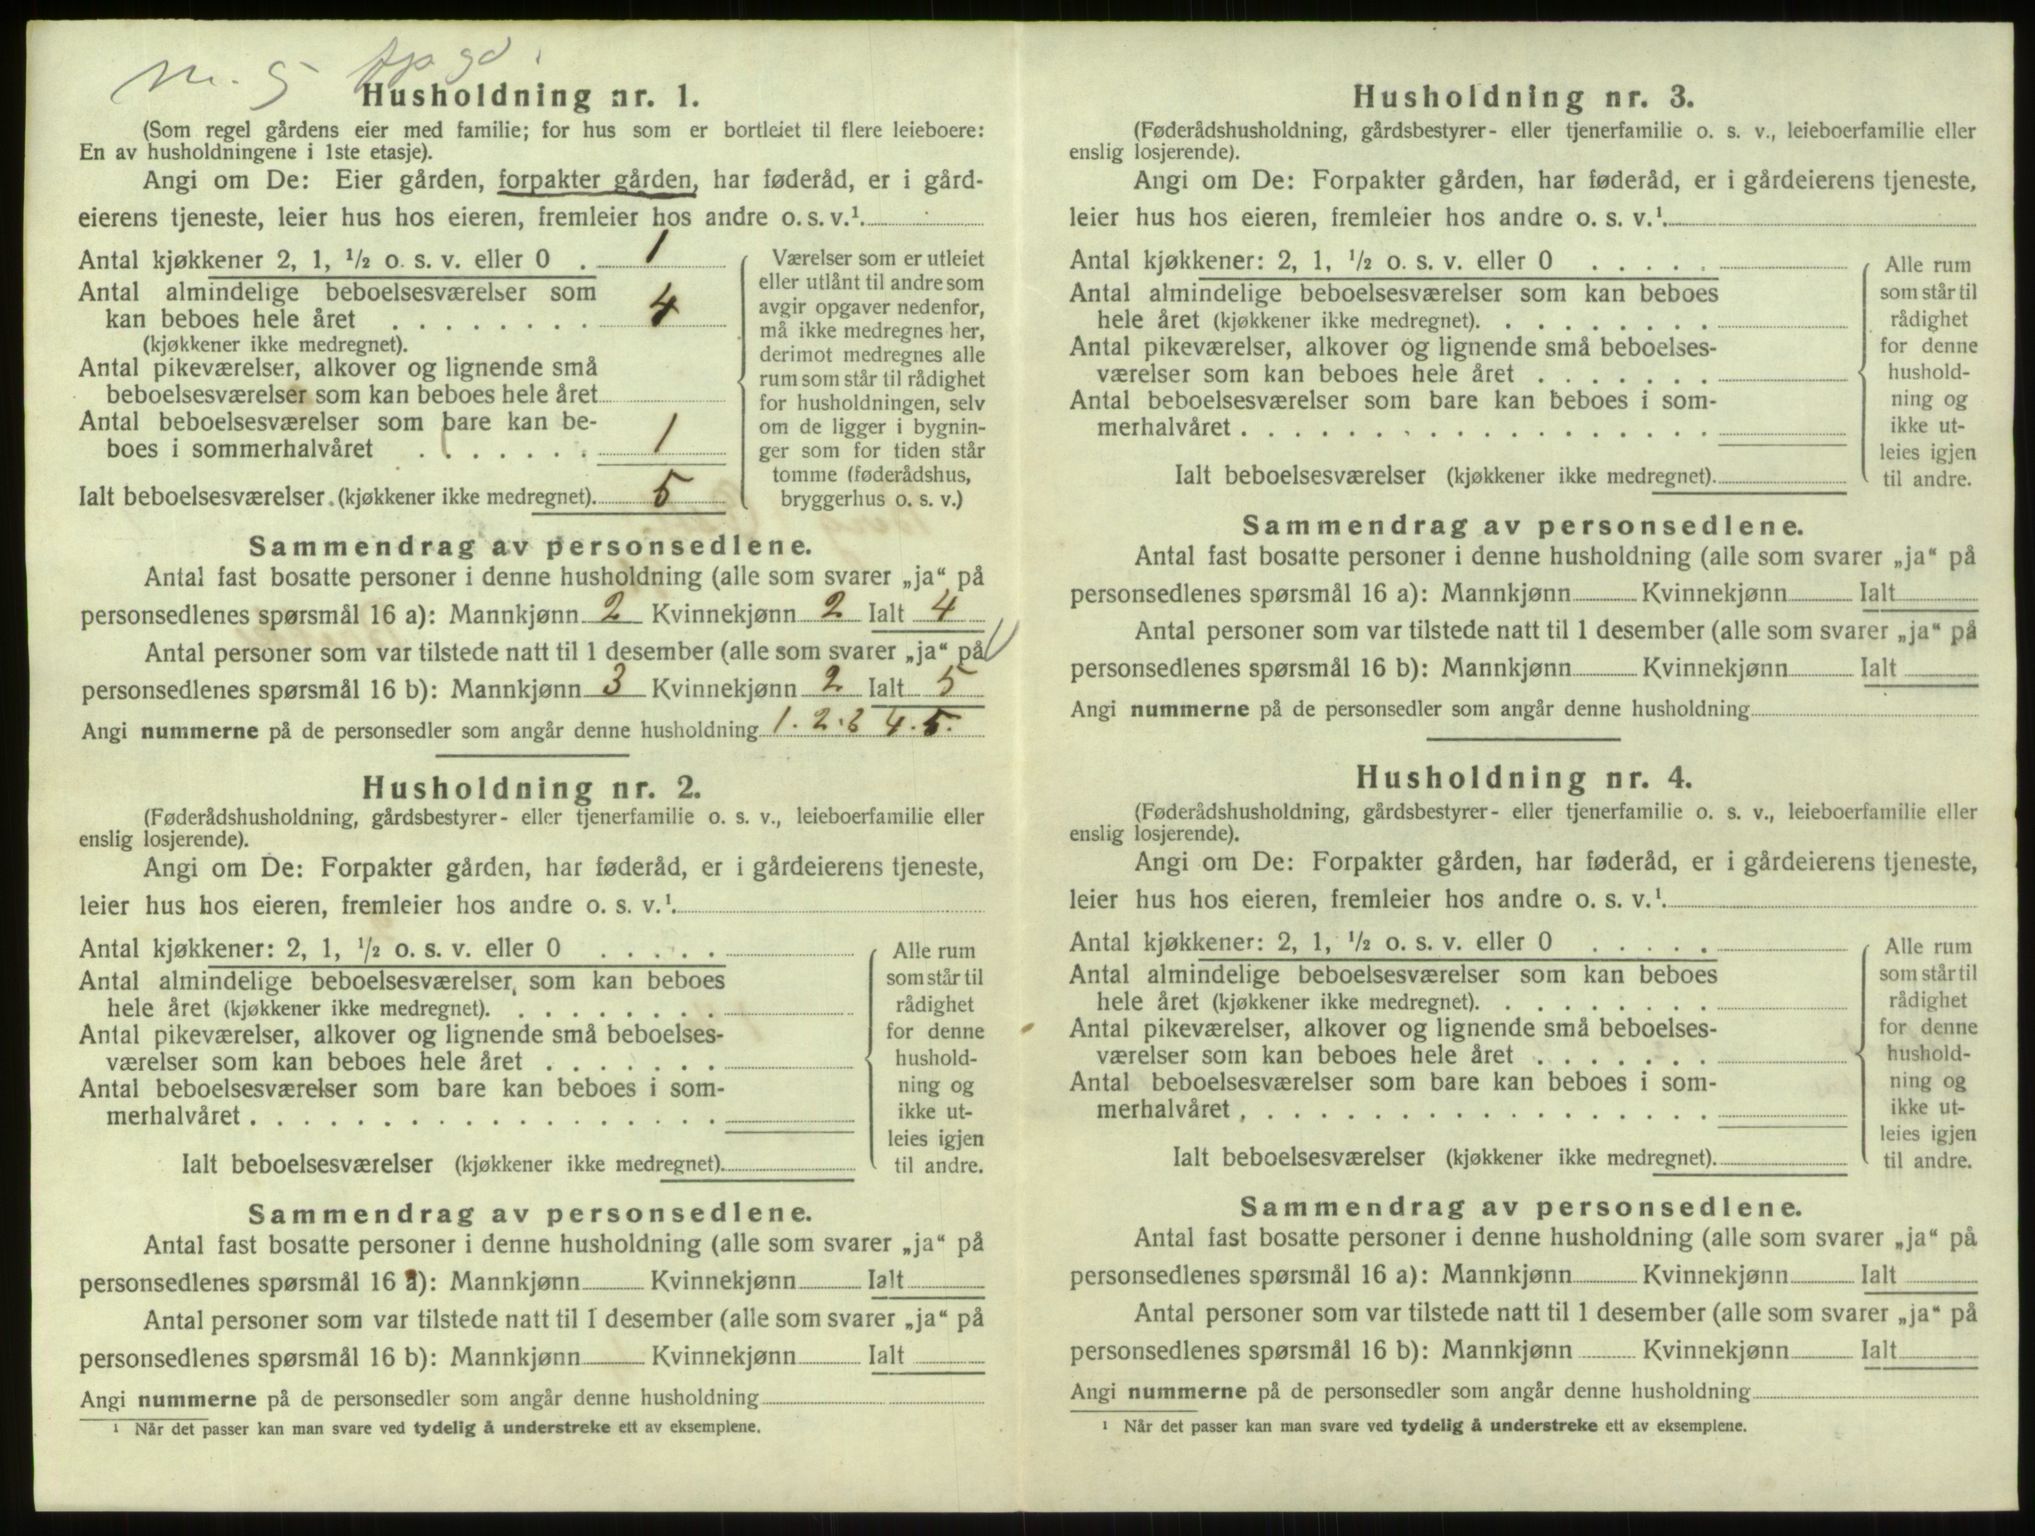 Husholdning nr. 1.
(Som regel gårdens eier med familie; for hus som er bortleiet til flere leieboere:
En av husholdningene i 1ste etasje).
Angi om De: Eier gården, forpakter gården, har føderåd, er i gård-
eierens tjeneste, leier hus hos eieren, fremleier hos andre o. s. v.¹
Antal kjøkkener 2, 1, ½ o. s. v. eller 0 . 1
Antal almindelige beboelsesværelser som
kan beboes hele året . . . . . . . . 4
(kjøkkener ikke medregnet).
Antal pikeværelser, alkover og lignende små
beboelsesværelser som kan beboes hele året
Antal beboelsesværelser som bare kan be-
boes i sommerhalvåret . . . . . . . 1
Ialt beboelsesværelser. (kjøkkener ikke medregnet). 5
Værelser som er utleiet
eller utlånt til andre som
avgir opgaver nedenfor,
må ikke medregnes her,
derimot medregnes alle
rum som står til rådighet
for husholdningen, selv
om de ligger i bygnin-
ger som for tiden står
tomme (føderådshus,
bryggerhus o. s. v.)
Sammendrag av personsedlene.
Antal fast bosatte personer i denne husholdning (alle som svarer „ja“ på
personsedlenes spørsmål 16 a): Mannkjønn 2 Kvinnekjønn 2 Ialt 4
Antal personer som var tilstede natt til 1 desember (alle som svarer „ja“ på
personsedlenes spørsmål 16 b): Mannkjønn 3 Kvinnekjønn 2 Ialt 5
Angi nummerne på de personsedler som angår denne husholdning 1. 2. 3 4. 5.
Husholdning nr. 2.
(Føderådshusholdning, gårdsbestyrer- eller tjenerfamilie o. s. v., leieboerfamilie eller
enslig losjerende).
Angi om De: Forpakter gården, har føderåd, er i gårdeierens tjeneste,
leier hus hos eieren, fremleier hos andre o. s. v.¹
Antal kjøkkener: 2, 1, ½ o. s. v. eller 0 . . . . .
Antal almindelige beboelsesværelser som kan beboes
hele året (kjøkkener ikke medregnet). . . . . . . . .
Antal pikeværelser, alkover og lignende små beboelses-
værelser som kan beboes hele året . . . . . . .
Antal beboelsesværelser som bare kan beboes i som-
merhalvåret . . . . . . . . . . . . . . . . . .
Ialt beboelsesværelser (kjøkkener ikke medregnet).
Alle rum
som står til
rådighet
for denne
hushold-
ning og
ikke ut-
leies igjen
til andre.
Sammendrag av personsedlene.
Antal fast bosatte personer i denne husholdning (alle som svarer „ja“ på
personsedlenes spørsmål 16 a): Mannkjønn Kvinnekjønn Ialt
Antal personer som var tilstede natt til 1 desember (alle som svarer „ja“ på
personsedlenes spørsmål 16 b): Mannkjønn Kvinnekjønn Ialt
Angi nummerne på de personsedler som angår denne husholdning
¹ Når det passer kan man svare ved tydelig å understreke ett av eksemplene.
Husholdning nr. 3.
(Føderådshusholdning, gårdsbestyrer- eller tjenerfamilie o. s. v., leieboerfamilie eller
enslig losjerende).
Angi om De: Forpakter gården, har føderåd, er i gårdeierens tjeneste,
leier hus hos eieren, fremleier hos andre o. s. v.¹
Antal kjøkkener: 2, 1, ½ o. s. v. eller 0 . . . . .
Antal almindelige beboelsesværelser som kan beboes
hele året (kjøkkener ikke medregnet). . . . . . . . .
Antal pikeværelser, alkover og lignende små beboelses-
værelser som kan beboes hele året . . . . . . .
Antal beboelsesværelser som bare kan beboes i som-
merhalvåret . . . . . . . . . . . . . . . . . .
Ialt beboelsesværelser (kjøkkener ikke medregnet).
Alle rum
som står til
rådighet
for denne
hushold-
ning og
ikke ut-
leies igjen
til andre.
Sammendrag av personsedlene.
Antal fast bosatte personer i denne husholdning (alle som svarer „ja“ på
personsedlenes spørsmål 16 a): Mannkjønn Kvinnekjønn Ialt
Antal personer som var tilstede natt til 1 desember (alle som svarer „ja“ på
personsedlenes spørsmål 16 b): Mannkjønn Kvinnekjønn Ialt
Angi nummerne på de personsedler som angår denne husholdning
Husholdning nr. 4.
(Føderådshusholdning, gårdsbestyrer- eller tjenerfamilie o. s. v., leieboerfamilie eller
enslig losjerende).
Angi om De: Forpakter gården, har føderåd, er i gårdeierens tjeneste,
leier hus hos eieren, fremleier hos andre o. s. v.¹
Antal kjøkkener: 2, 1, ½ o. s. v. eller 0 . . . . .
Antal almindelige beboelsesværelser som kan beboes
hele året (kjøkkener ikke medregnet). . . . . . . . .
Antal pikeværelser, alkover og lignende små beboelses-
værelser som kan beboes hele året . . . . . . .
Antal beboelsesværelser som bare kan beboes i som-
merhalvåret . . . . . . . . . . . . . . . . . .
Ialt beboelsesværelser (kjøkkener ikke medregnet).
Alle rum
som står til
rådighet
for denne
hushold-
ning og
ikke ut-
leies igjen
til andre.
Sammendrag av personsedlene.
Antal fast bosatte personer i denne husholdning (alle som svarer „ja“ på
personsedlenes spørsmål 16 a): Mannkjønn Kvinnekjønn Ialt
Antal personer som var tilstede natt til 1 desember (alle som svarer „ja“ på
personsedlenes spørsmål 16 b): Mannkjønn Kvinnekjønn Ialt
Angi nummerne på de personsedler som angår denne husholdning
¹ Når det passer kan man svare ved tydelig å understreke ett av eksemplene.